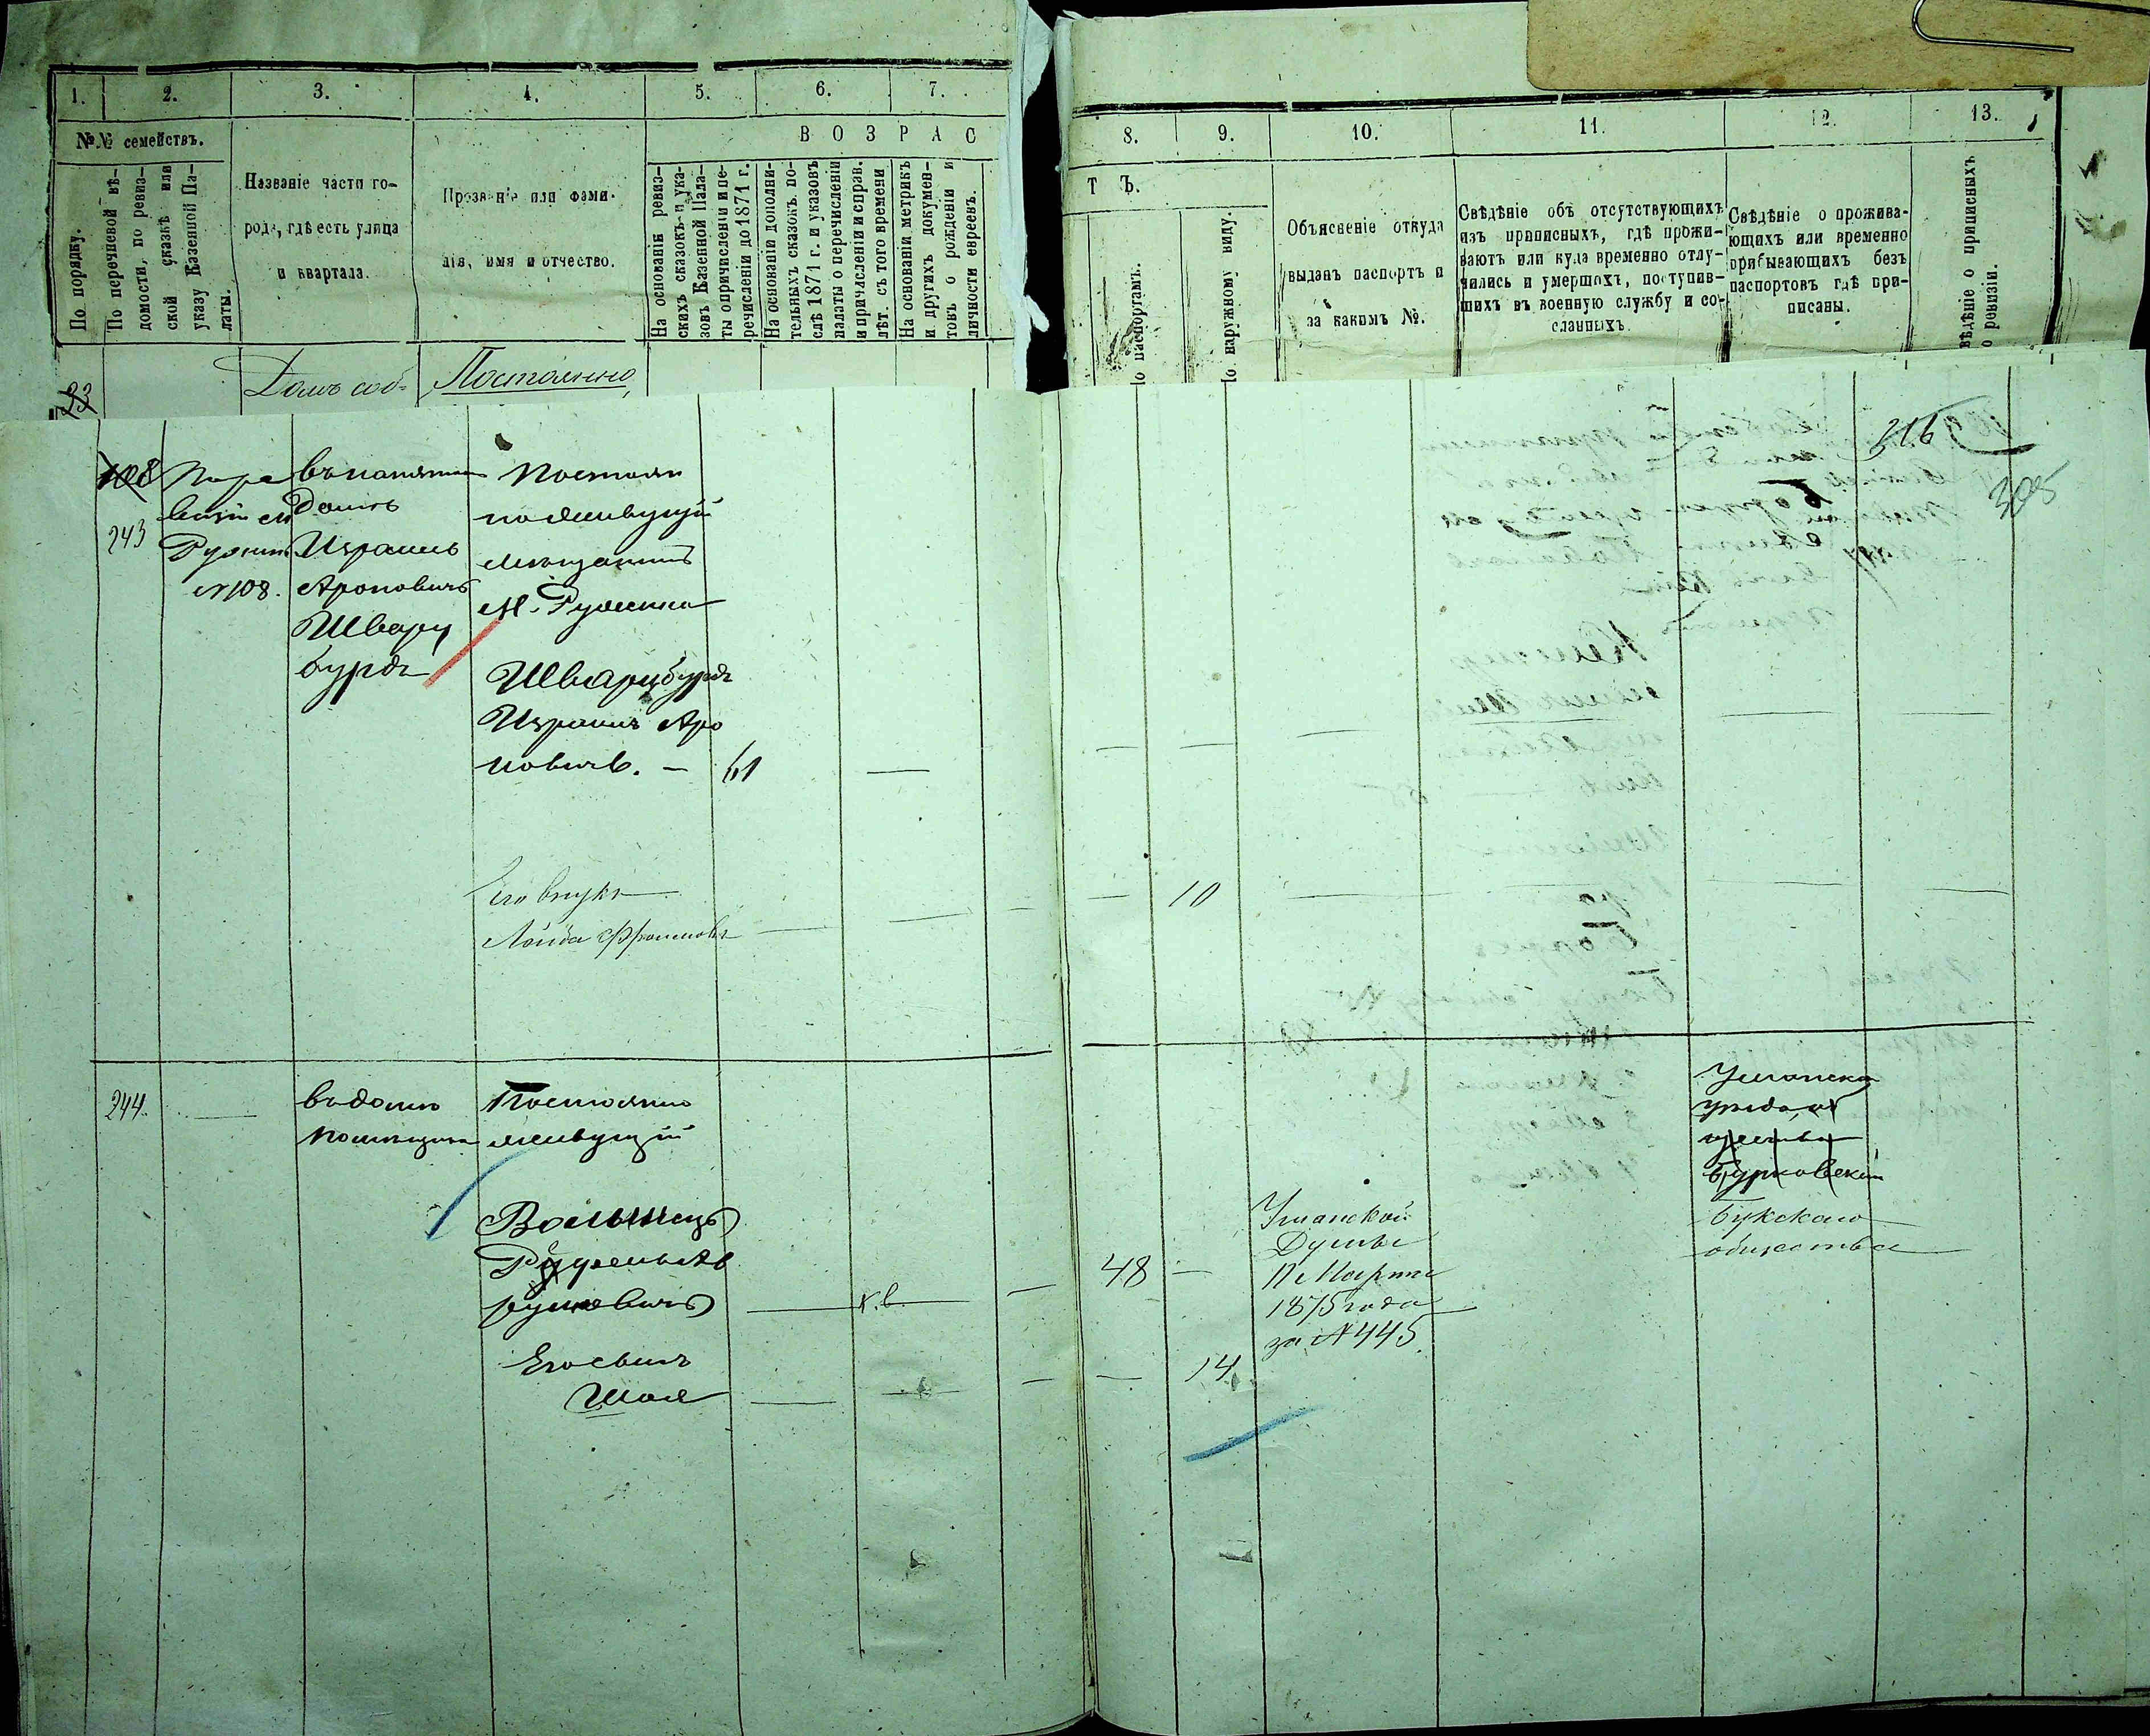 1. 2. 3. 4. 5. 6. 7.
№№ семействъ.
По порядку.
По перечневой вѣ-
домости, по ревиз-
ской сказкѣ или
указу Казенной Па-
латы.
Названіе части го-
рода, гдѣ есть улица
и квартала.
Прозваніе или фами-
лія, имя и отчество.
ВОЗРАС
На основаніи ревиз-
скихъ сказокъ и ука-
зовъ Казенной Пала-
ты о причисленіи и пе-
речисленіи до 1871 г.
На основаніи дополни-
тельныхъ сказокъ. по-
слѣ 1871 г. и указовъ
палаты о перечисленіи
и причисленіи и справ.
лѣт. съ того времени
На основаніи метрикъ
и другихъ докумен-
товъ о рожденіи и
личности евреевъ.
23
Домъ соб-
Постоянно
8. 9. 10. 11. 12. 13.
ТЪ.
По паспортамъ.
По наружному виду.
Объясненіе откуда
выданъ паспортъ и
за какимъ №.
Свѣдѣніе объ отсутствующихъ
изъ приписныхъ, гдѣ прожи-
ваютъ или куда временно отлу-
чились и умершихъ, поступив-
шихъ въ военную службу и со-
сланныхъ.
Свѣдѣніе о прожива-
ющихъ или временно
прибывающихъ безъ
паспортовъ гдѣ при-
писаны.
вѣдѣніе о приписныхъ
о ревизіи.
316
305
108
243
Ружинъ
№ 108.
домѣ
Израиль
Ароновичъ
Шварц
бурдъ
Постоян
но живущій
мѣщанинъ
М. Ружина
Шварцбурдъ
Израиль Аро
новичъ. — 61
Его внукъ
Лейба
10
244.
въ домѣ
помѣщика
Постоянно
живущій
Его сынъ
Шая
к.в.
48
14
Уманской
Думы
11 Марта
1875 года
за № 445.
Букскаго
общества